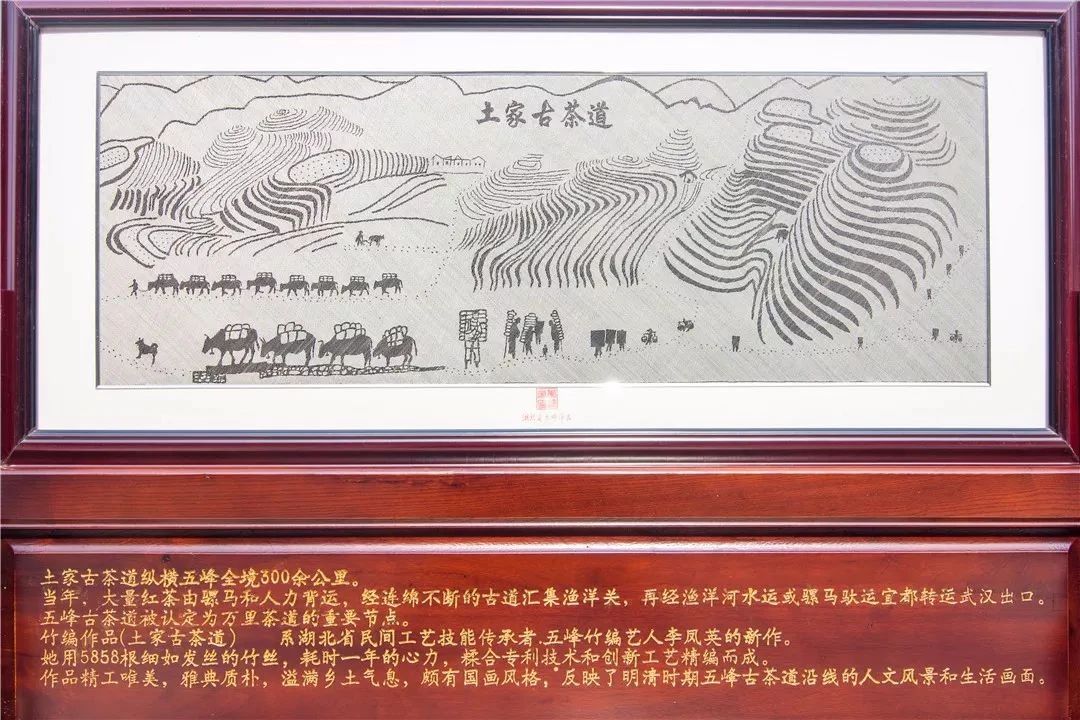 土家古茶道
土家古茶道纵横五峰全境300余公里。
当年．大量红茶由骡马和人力背运，经连绵不断的古道汇集渔洋关，再经渔洋河水运或骡马驮运宜都转运武汉出口。
五峰古茶道被认定为万里茶道的重要节点。
竹编作品(土家古茶道) 系湖北省民间工艺技能传承者.五峰竹编艺人李凤英的新作。
她用5858根细如发丝的竹丝，耗时一年的心力，糅合专利技术和创新工艺精编而成。
作品精工唯美，雅典质朴，溢满乡土气息，颇有国画风格，反映了明清时期五峰古茶道沿线的人文风景和生活画面。